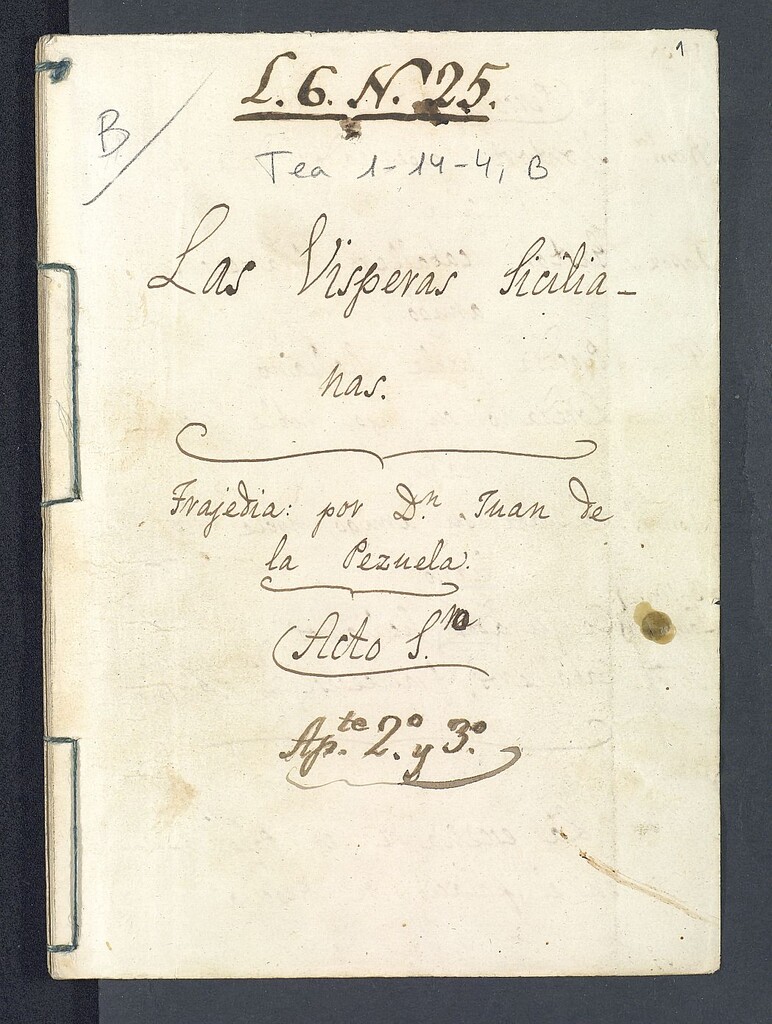 1
L. 6. N. 25.
B
Tea 1-14-4, B
Las Visperas Sicilia-
nas.
Trajedia: por Dn. Juan de
la Pezuela.
Acto S.
Ap.te 2.º y 3.º